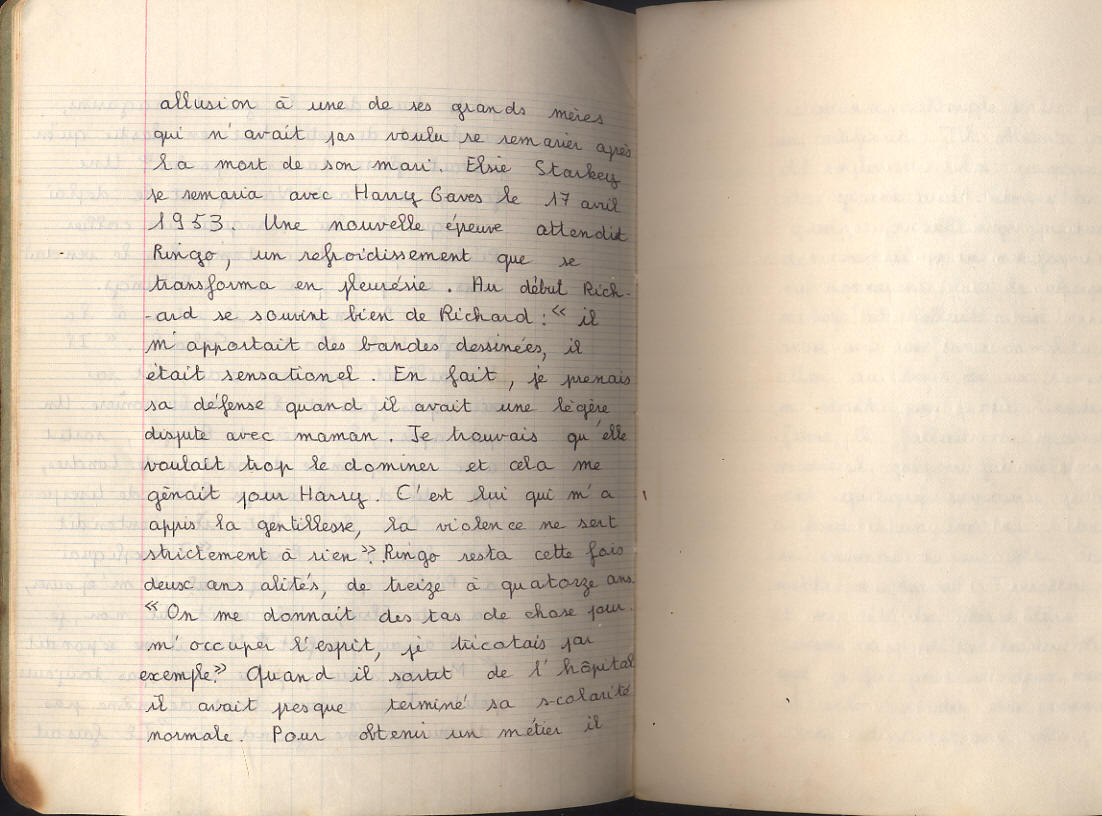 allusion à une de ses grands mères
qui n'avait pas voulu se remarier après
la mort de son mari. Elsie Starkey
se remaria avec Harry Gaves le 17 avril
1953. Une nouvelle épreuve attendit
Ringo, un refroidissement que se
transforma en pleurésie. Au début Rich-
-ard se souvint bien de Richard : « il
m'apportait des bandes dessinées, il
était sensationel. En fait, je prenais
sa défense quand il avait une légère
dispute avec maman. Je trouvais qu'elle
voulait trop le dominer et cela me
gênait pour Harry. C'est lui qui m'a
appris la gentillesse, la violence ne sert
strictement à rien ». Ringo resta cette fois
deux ans alités, de treize à quatorze ans.
« On me donnait des tas de chose pour
m'occuper l'esprit, je tricotais par
exemple. » Quand il sortit de l'hôpital
il avait presque terminé sa scolarité
normale. Pour obtenir un métier il